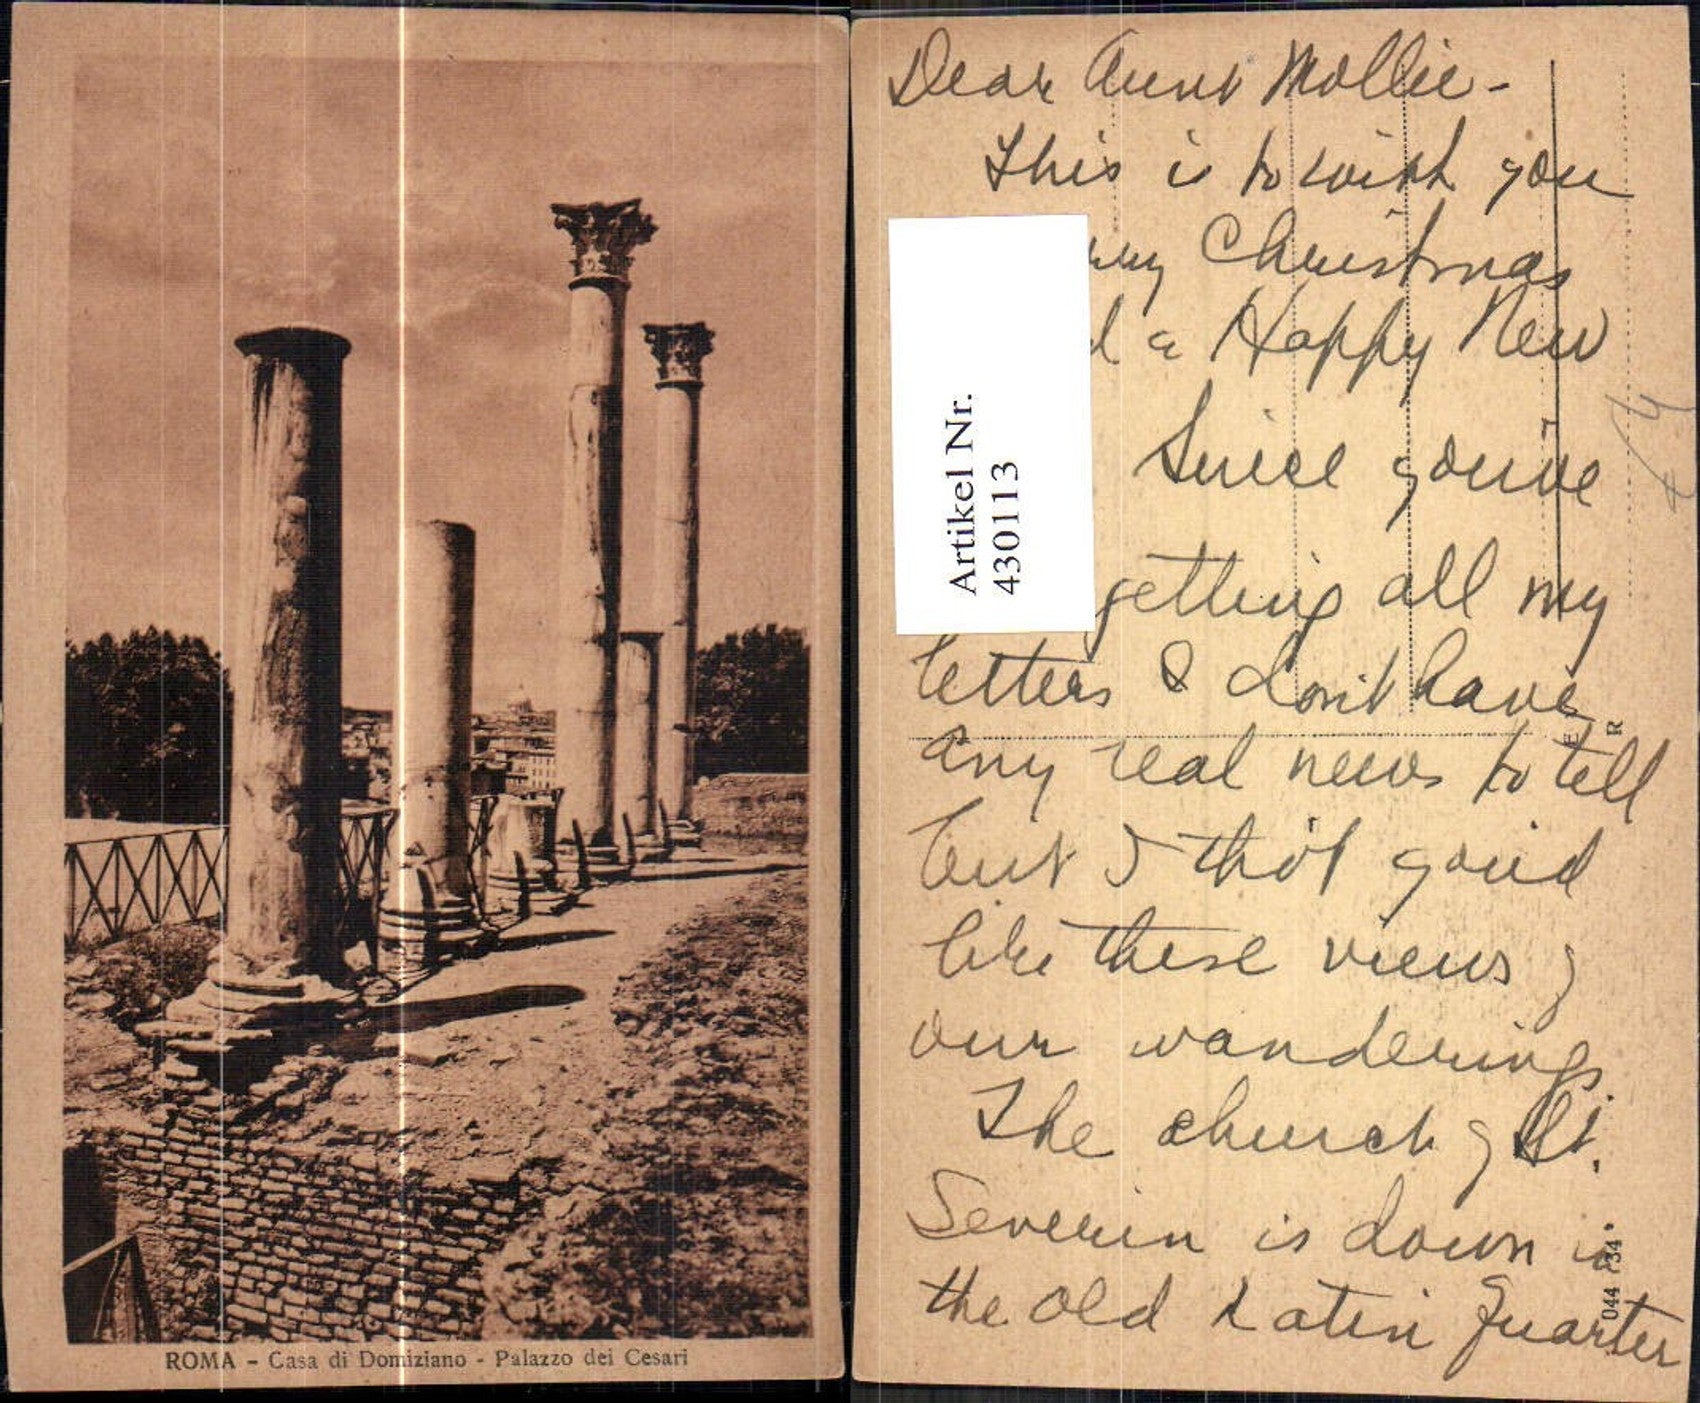 ROMA - Casa di Domiziano - Palazzo dei Cesari
Dear Aunt Mollie -
This is to wish you
Christmas
a Happy New
Since you've
getting all my
letters I don't have
any real news to tell
but I tho't you'd
like these views of
our wanderings.
The church of St.
Severin is down in
the old Latin Quarter
Artikel Nr.
430113
E R
044 / 34